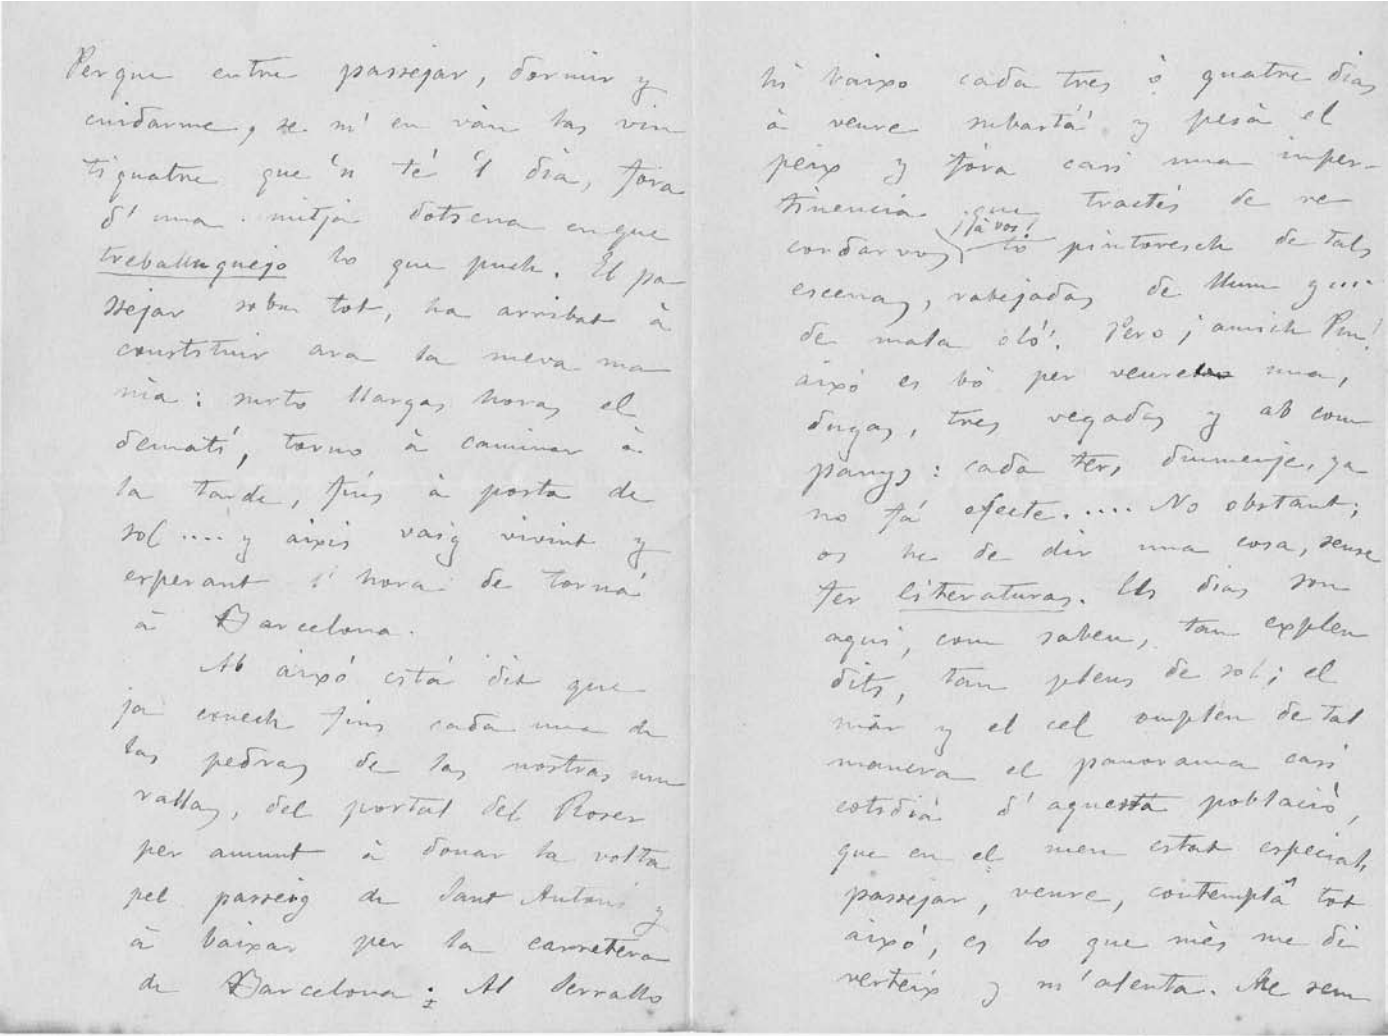 Perque entre passejar, dormir y
cuidarme, se m' en ván las vin
tiquatre que 'n té 'l dia, fora
d' una mitja dotsena en que
treballuquejo lo que puch. El pa
ssejar sobre tot, ha arribat á
constituir ara la meva ma
nia: surto llargas horas el
dematí, torno á caminar á
la tarde, fins á posta de
sol .... y aixis vaig vivint y
esperant l' hora de torná
á Barcelona.
Ab aixó está dit que
ja conech fins cada una de
las pedras de las nostras mu
rallas, del portal del Roser
per amunt á donar la volta
pel passeig de Sant Antoni y
á baixar per la carretera
de Barcelona: Al Serrallo
hi baixo cada tres ó quatre dias
á veure subastá y pesá el
peix y fora casi una imper-
tinencia que tractés de re
cordarvos ¡á vos! lo pintoresch de tals
escenas, rabejadas de llum y...
de mala oló. Pero ¡amich Pin!
aixó es bó per veure una,
dugas, tres vegadas y ab com
panys: cada ters diumenje, ya
no fá efecte..... No obstant;
os he de dir una cosa, sense
fer literaturas. Els dias son
aqui, com sabeu, tan explen
dits, tan plens de sol; el
mar y el cel omplen de tal
manera el panorama casi
cotidiá d' aquesta població,
que en el meu estat especial,
passejar, veure, contemplá tot
aixó, es lo que més me di
verteix y m' alenta. Me sem